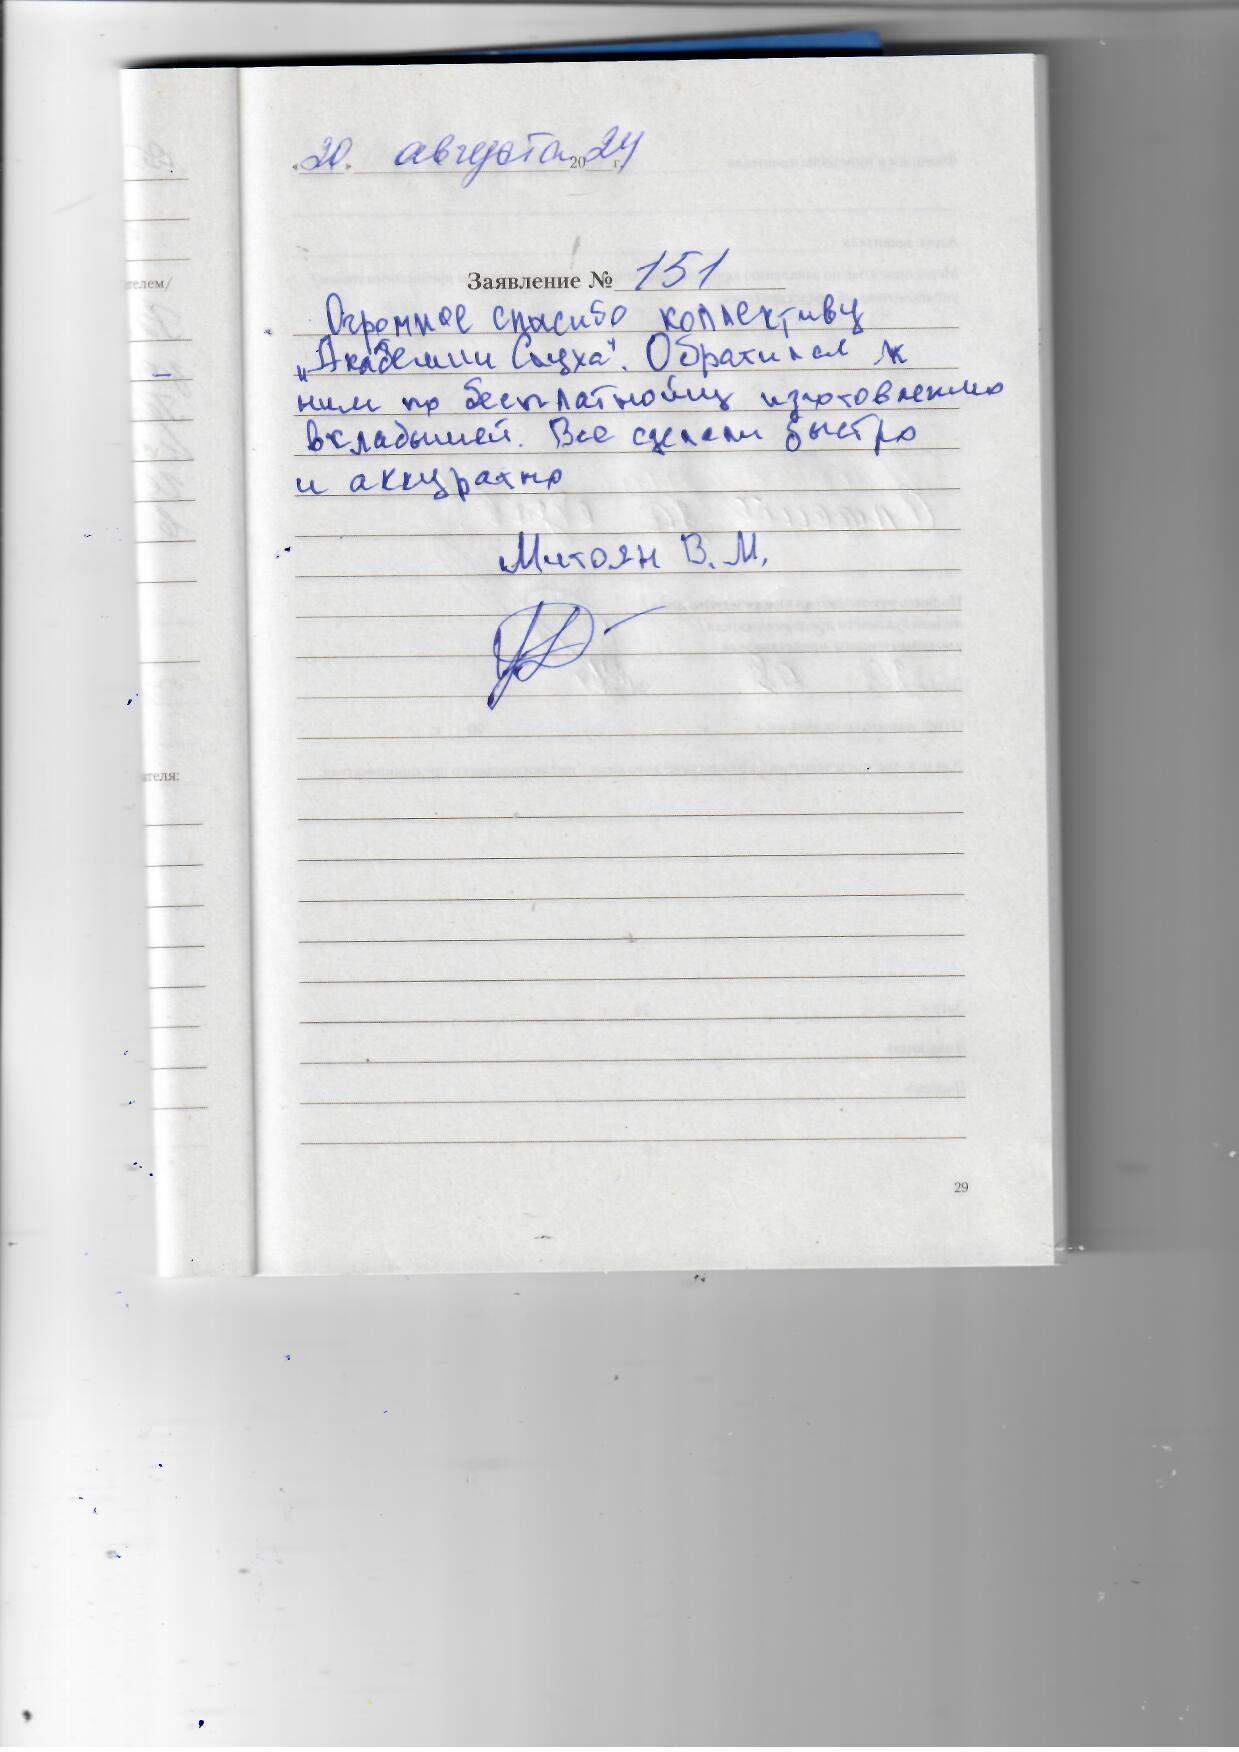 «20» августа 2024 г.
Заявление № 151
Огромное спасибо коллективу
„Академии Слуха". Обратился к
ним по бесплатному изготовлению
вкладышей. Все сделали быстро
и аккуратно
Митоян В. М.
телем/
ателя:
29